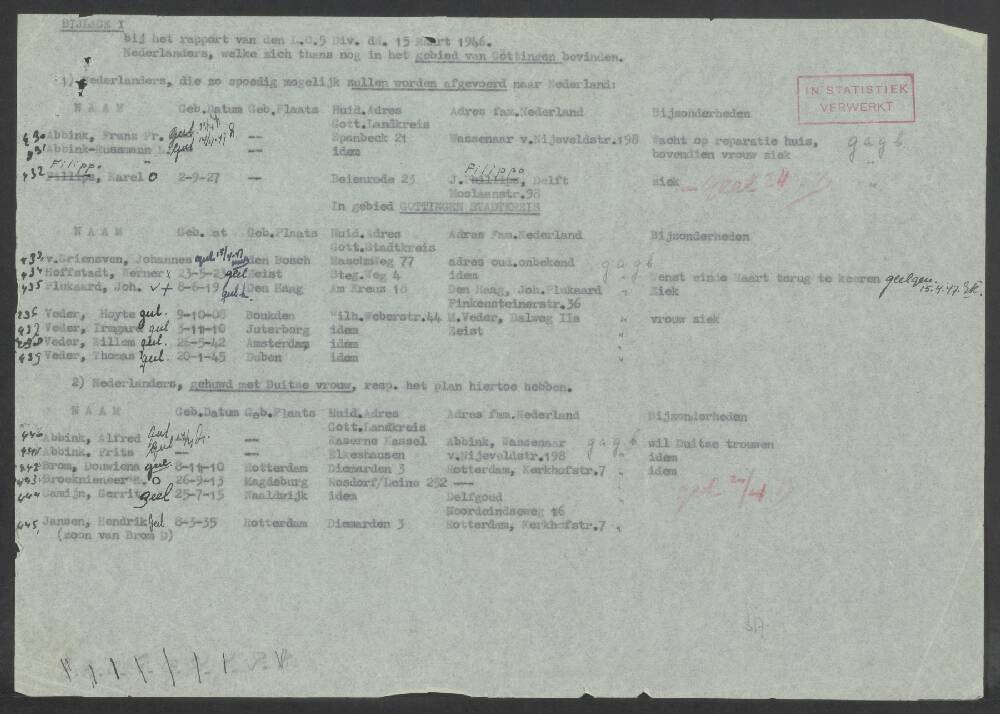 BIJLAGE I
bij het rapport van den L.O.5 Div. dd. 15 Maart 1946.
Nederlanders, welke zich thans nog in het gebied van Göttingen bevinden.
1) Nederlanders, die zo spoedig mogelijk zullen worden afgevoerd naar Nederland:
IN STATISTIEK
VERWERKT
N A A M Geb.Datum Geb.Plaats Huid.Adres Adres fam.Nederland Bijzonderheden
Gott.Landkreis
430 Abbink, Frans Fr. geel -- Spanbeck 21 Wassenaar v.Nijeveldstr.198 Wacht op reparatie huis, g a g b
431 Abbink-Russmann geel -- idem bovendien vrouw ziek "
Filippo Filippo
432 Fillips, Karel O 2-9-27 -- Beienrode 23 J. Phillips, Delft ziek geel
Moslaanstr.98
In gebied GOTTINGEN STADTKREIS
N A A M Geb.Dat Geb.Plaats Huid.Adres Adres Fam.Nederland Bijzonderheden
Gott.Stadtkreis
433 v.Griensven, Johannes geel den Bosch Maschzweg 77 adres oud.onbekend g a g b
434 Hoffstadt, Werner 23-5-23 geel Zeist Steg.Weg 4 idem " Wenst einde Maart terug te keeren geelgez. 15.4.47
435 Plukaard, Joh. 8-6-19 Den Haag Am Kreuz 18 Den Haag, Joh.Plukaard " Ziek
Finkensteinerstr.36
436 Veder, Hoyte geel. 9-10-08 Beukden Wilh.Weberstr.44 M.Veder, Dalweg IIa " vrouw ziek
437 Veder, Irmgard geel 3-11-10 Juterborg idem Zeist "
438 Veder, Willem geel. 26-5-42 Amsterdam idem "
439 Veder, Thomas geel. 20-1-45 Duben idem "
2) Nederlanders, gehuwd met Duitse vrouw, resp. het plan hiertoe hebben.
N A A M Geb.Datum Geb.Plaats Huid.Adres Adres fam.Nederland Bijzonderheden
Gott.Landkreis
440 Abbink, Alfred geel -- Kaserne Kassel Abbink, Wassenaar g a g b wil Duitse trouwen
441 Abbink, Frits geel -- Elkeshausen v.Nijeveldstr.198 " idem
442 Brom, Douwiena geel 8-11-10 Rotterdam Diemarden 3 Rotterdam, Kerkhofstr.7 " idem
443 O 26-9-13 Magdeburg Nosdorf/Leine 292 ---
444 Damijn, Gerrit geel 25-7-15 Naaldwijk idem Delfgoud
Noordeindseweg 16
445 Jansen, Hendrik geel 8-3-35 Rotterdam Diemarden 3 Rotterdam, Kerkhofstr.7
(zoon van Brom D)